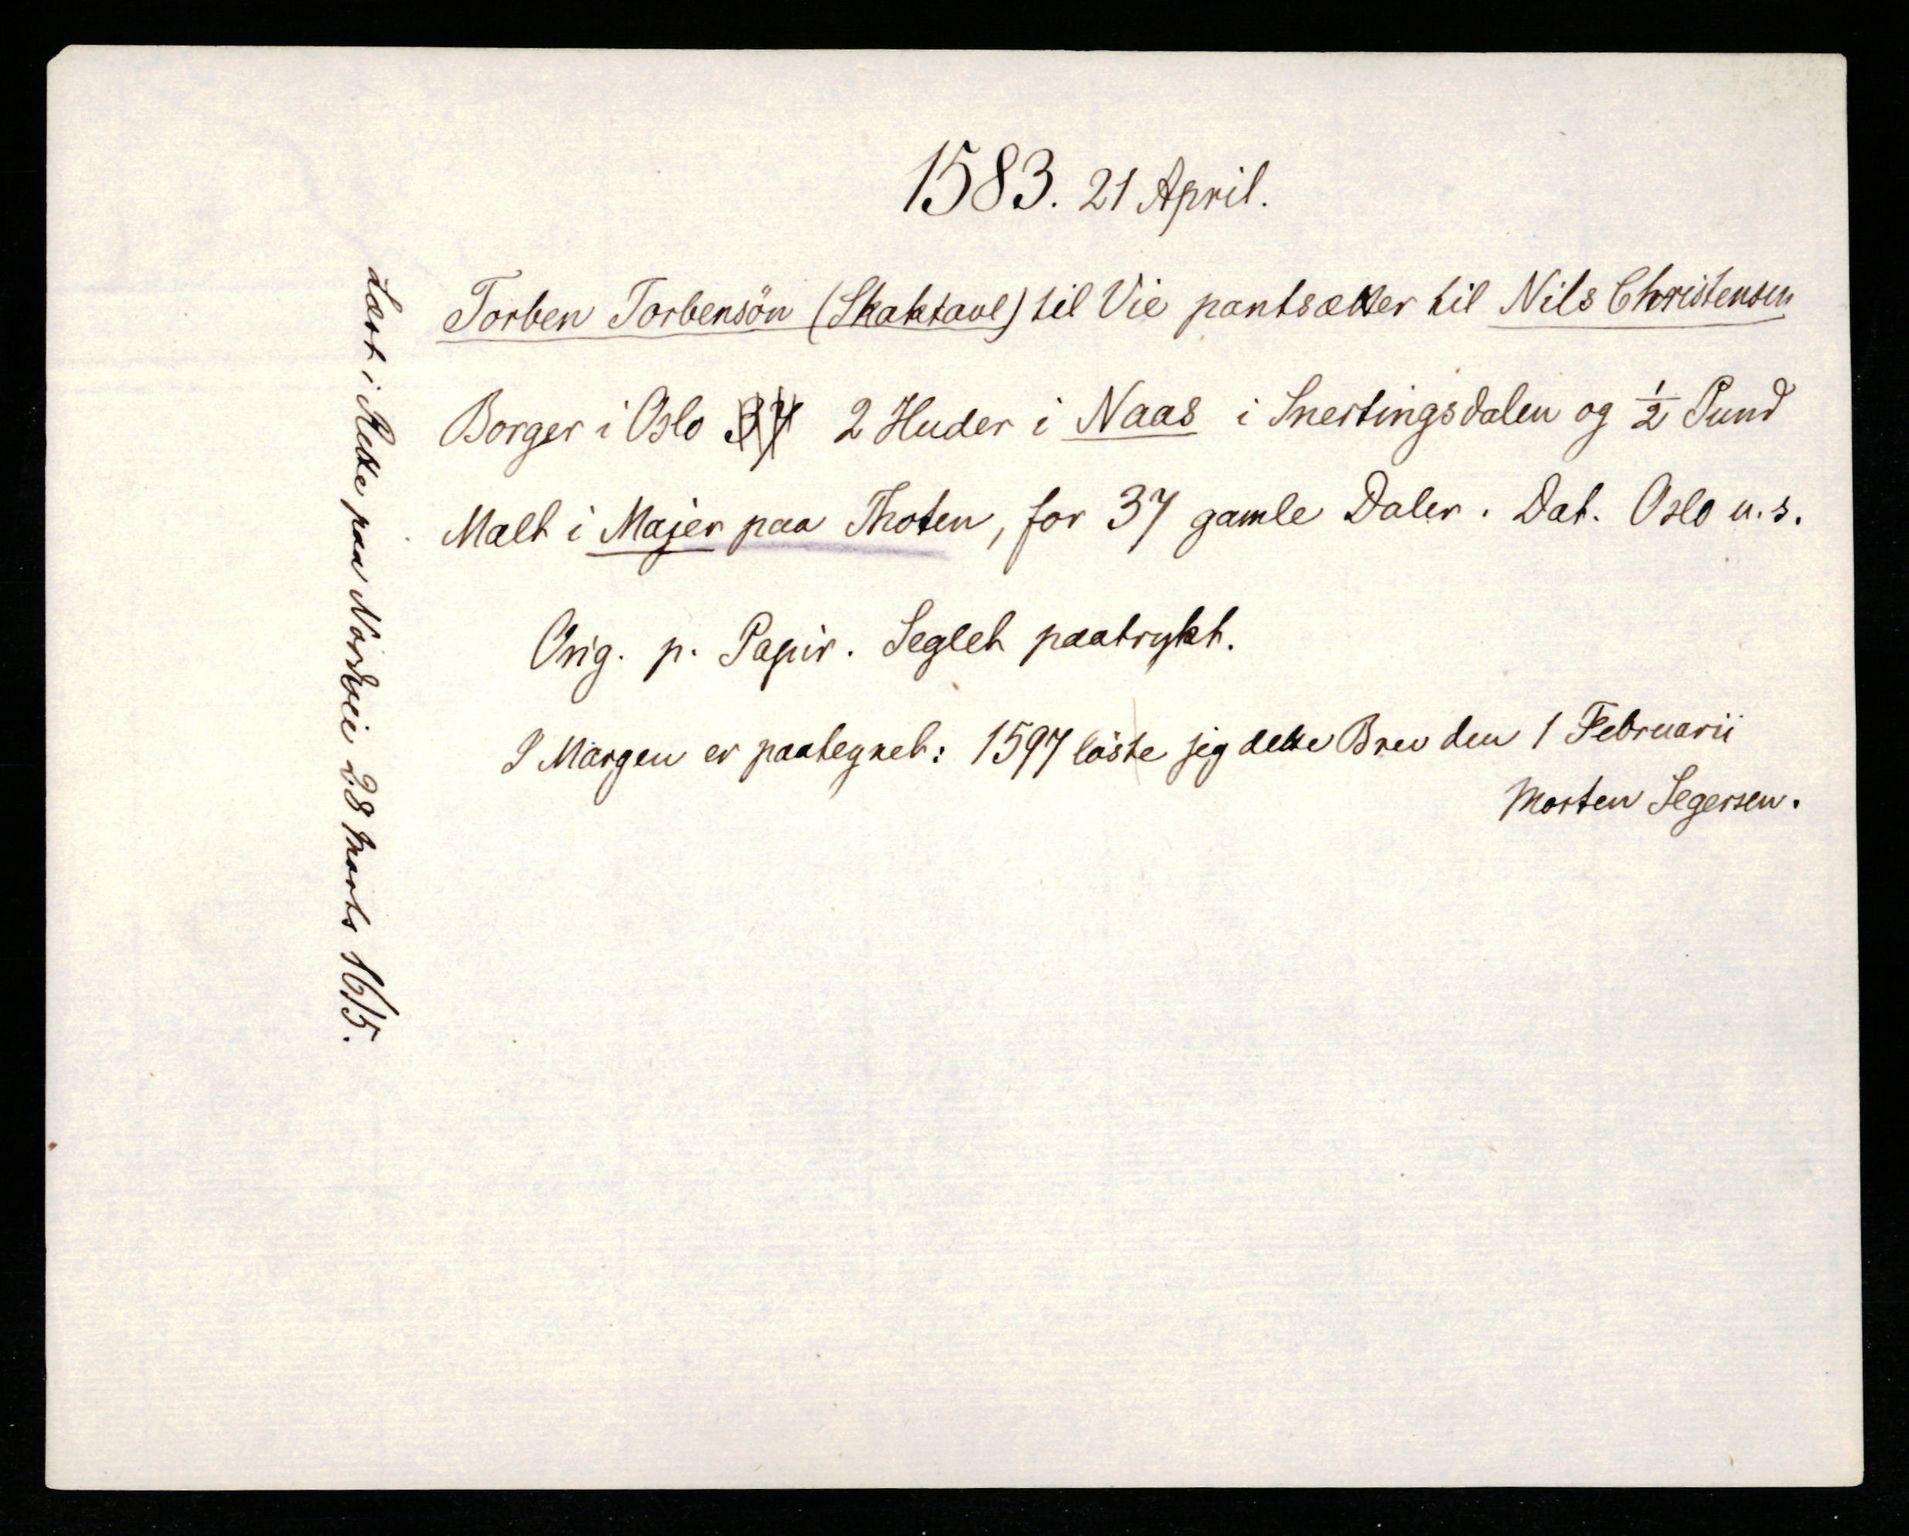 1583. 21 April.
Torben Torbensön (Skaktavl) til Vie pantsætter til Nils Christensen
Borger i Oslo 37 2 Huder i Naas i Snertingsdalen og ½ Pund
Malt i Majer paa Thoten, for 37 gamle Daler. Dat. Oslo u.s.
Orig. p. Papir. Seglet paatrykt.
I Margen er paategnet: 1597 löste jeg dette Brev den 1 Februarii
Morten Segersen.
Læst i Rette paa Nordvii 28 Marts 1615.